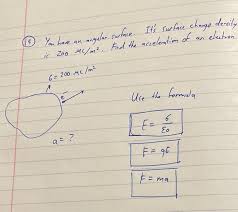 (15) You have an angular surface. It's surface charge density
is 200 μC/m². Find the acceleration of an electron.
σ = 200 μC/m²
e⁻
Use the formula
E = σ/ε₀
a = ?
F = qE
F = ma